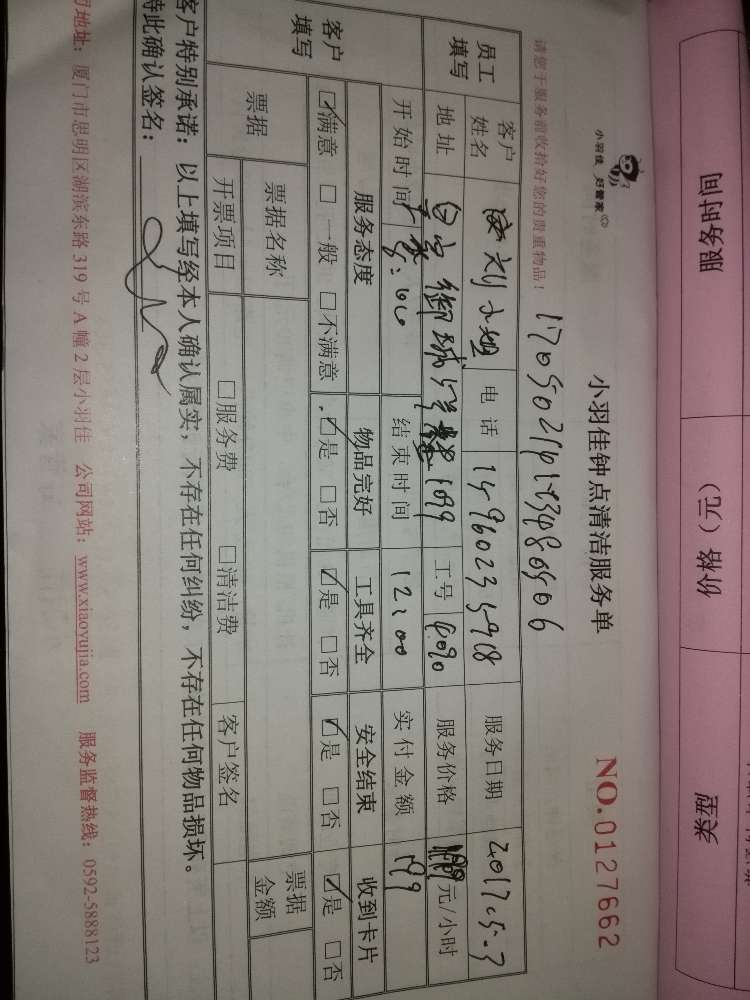 服务时间
价格（元）
类型
小羽佳 好管家
小羽佳钟点清洁服务单
NO.0127662
请您于服务前收拾好您的贵重物品！
员工填写
客户姓名 刘小姐 电话 服务日期 2017.5.3
地址 工号 服务价格 199 元/小时
开始时间 结束时间 12:00 实付金额 199
客户填写
服务态度 物品完好 工具齐全 安全结束 收到卡片
☑满意 □一般 □不满意 ☑是 □否 ☑是 □否 ☑是 □否 ☑是 □否
票据 票据名称 票据金额
开票项目 □服务费 □清洁费 客户签名
客户特别承诺：以上填写经本人确认属实，不存在任何纠纷，不存在任何物品损坏。
特此确认签名：
司地址：厦门市思明区湖滨东路 319 号 A 幢 2 层小羽佳 公司网站：www.xiaoyujia.com 服务监督热线：0592-5888123